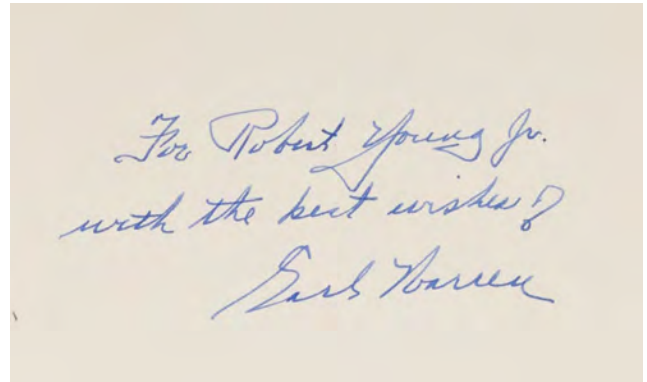 For Robert Young Jr.
with the best wishes of
Earl Warren